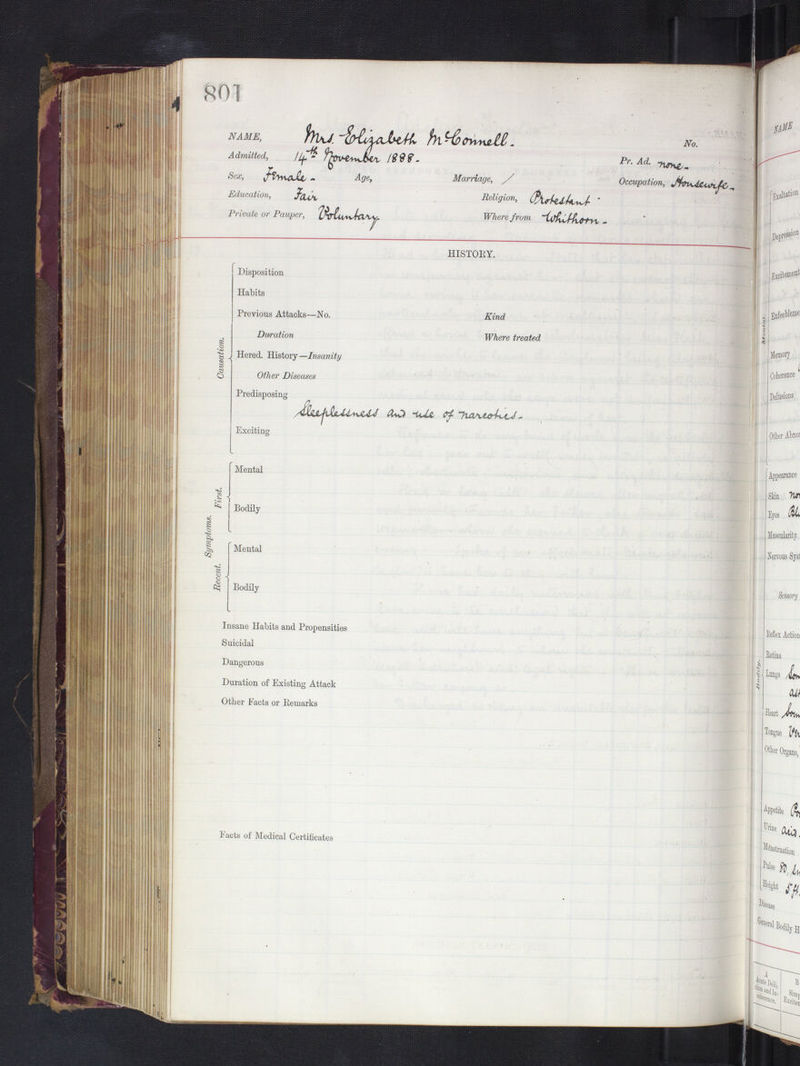 801
NAME, Mrs. Elizabeth McConnell. No.
Admitted, 14th November 1888. Pr. Ad. none.
Sex, Female. Age, Marriage, / Occupation, Housewife.
Education, Fair Religion, Protestant.
Private or Pauper, Voluntary. Where from Whithorn.
HISTORY.
Causation.
Disposition
Habits
Previous Attacks—No. Kind
Duration Where treated
Hered. History—Insanity
Other Diseases
Predisposing
Sleeplessness and use of narcotics.
Exciting
Symptoms.
First.
Mental
Bodily
Recent.
Mental
Bodily
Insane Habits and Propensities
Suicidal
Dangerous
Duration of Existing Attack
Other Facts or Remarks
Facts of Medical Certificates
NAME
Exaltation
Depression
Excitement
Mental.
Memory
Coherence
Delusions
Other
Appearance
Skin
Eyes
Muscularity
Nervous
Sensory
Reflex Action
Retina
Bodily.
Lungs
Heart
Tongue
Other Organs,
Appetite
Urine acid.
Menstruation
Pulse 80,
Height 5 ft.
Disease
General Bodily
A
B